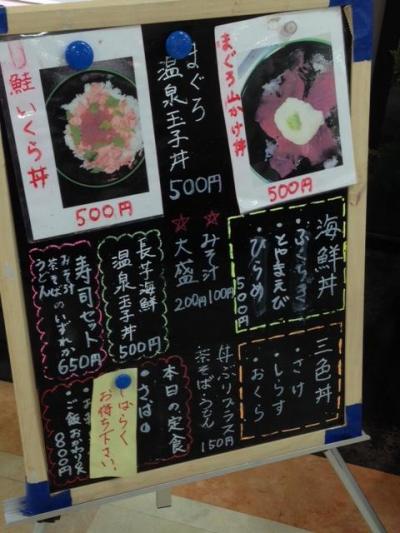 まぐろ山かけ丼
500円
まぐろ
温泉玉子丼
500円
鮭いくら丼
500円
海鮮丼
・ぶくちぎ
・とやきえび
・ひらめ
500円
☆みそ汁
100円
☆大盛
200円
長芋海鮮
温泉玉子丼
500円
寿司セット
みそ汁
茶そばのいずれか
うどん
650円
三色丼
・さけ
・しらす
・おくら
丼ぶりプラス
茶そば・うどん
150円
本日の定食
・さば
しばらく
お待ち下さい。
・ご飯おかわり
800円